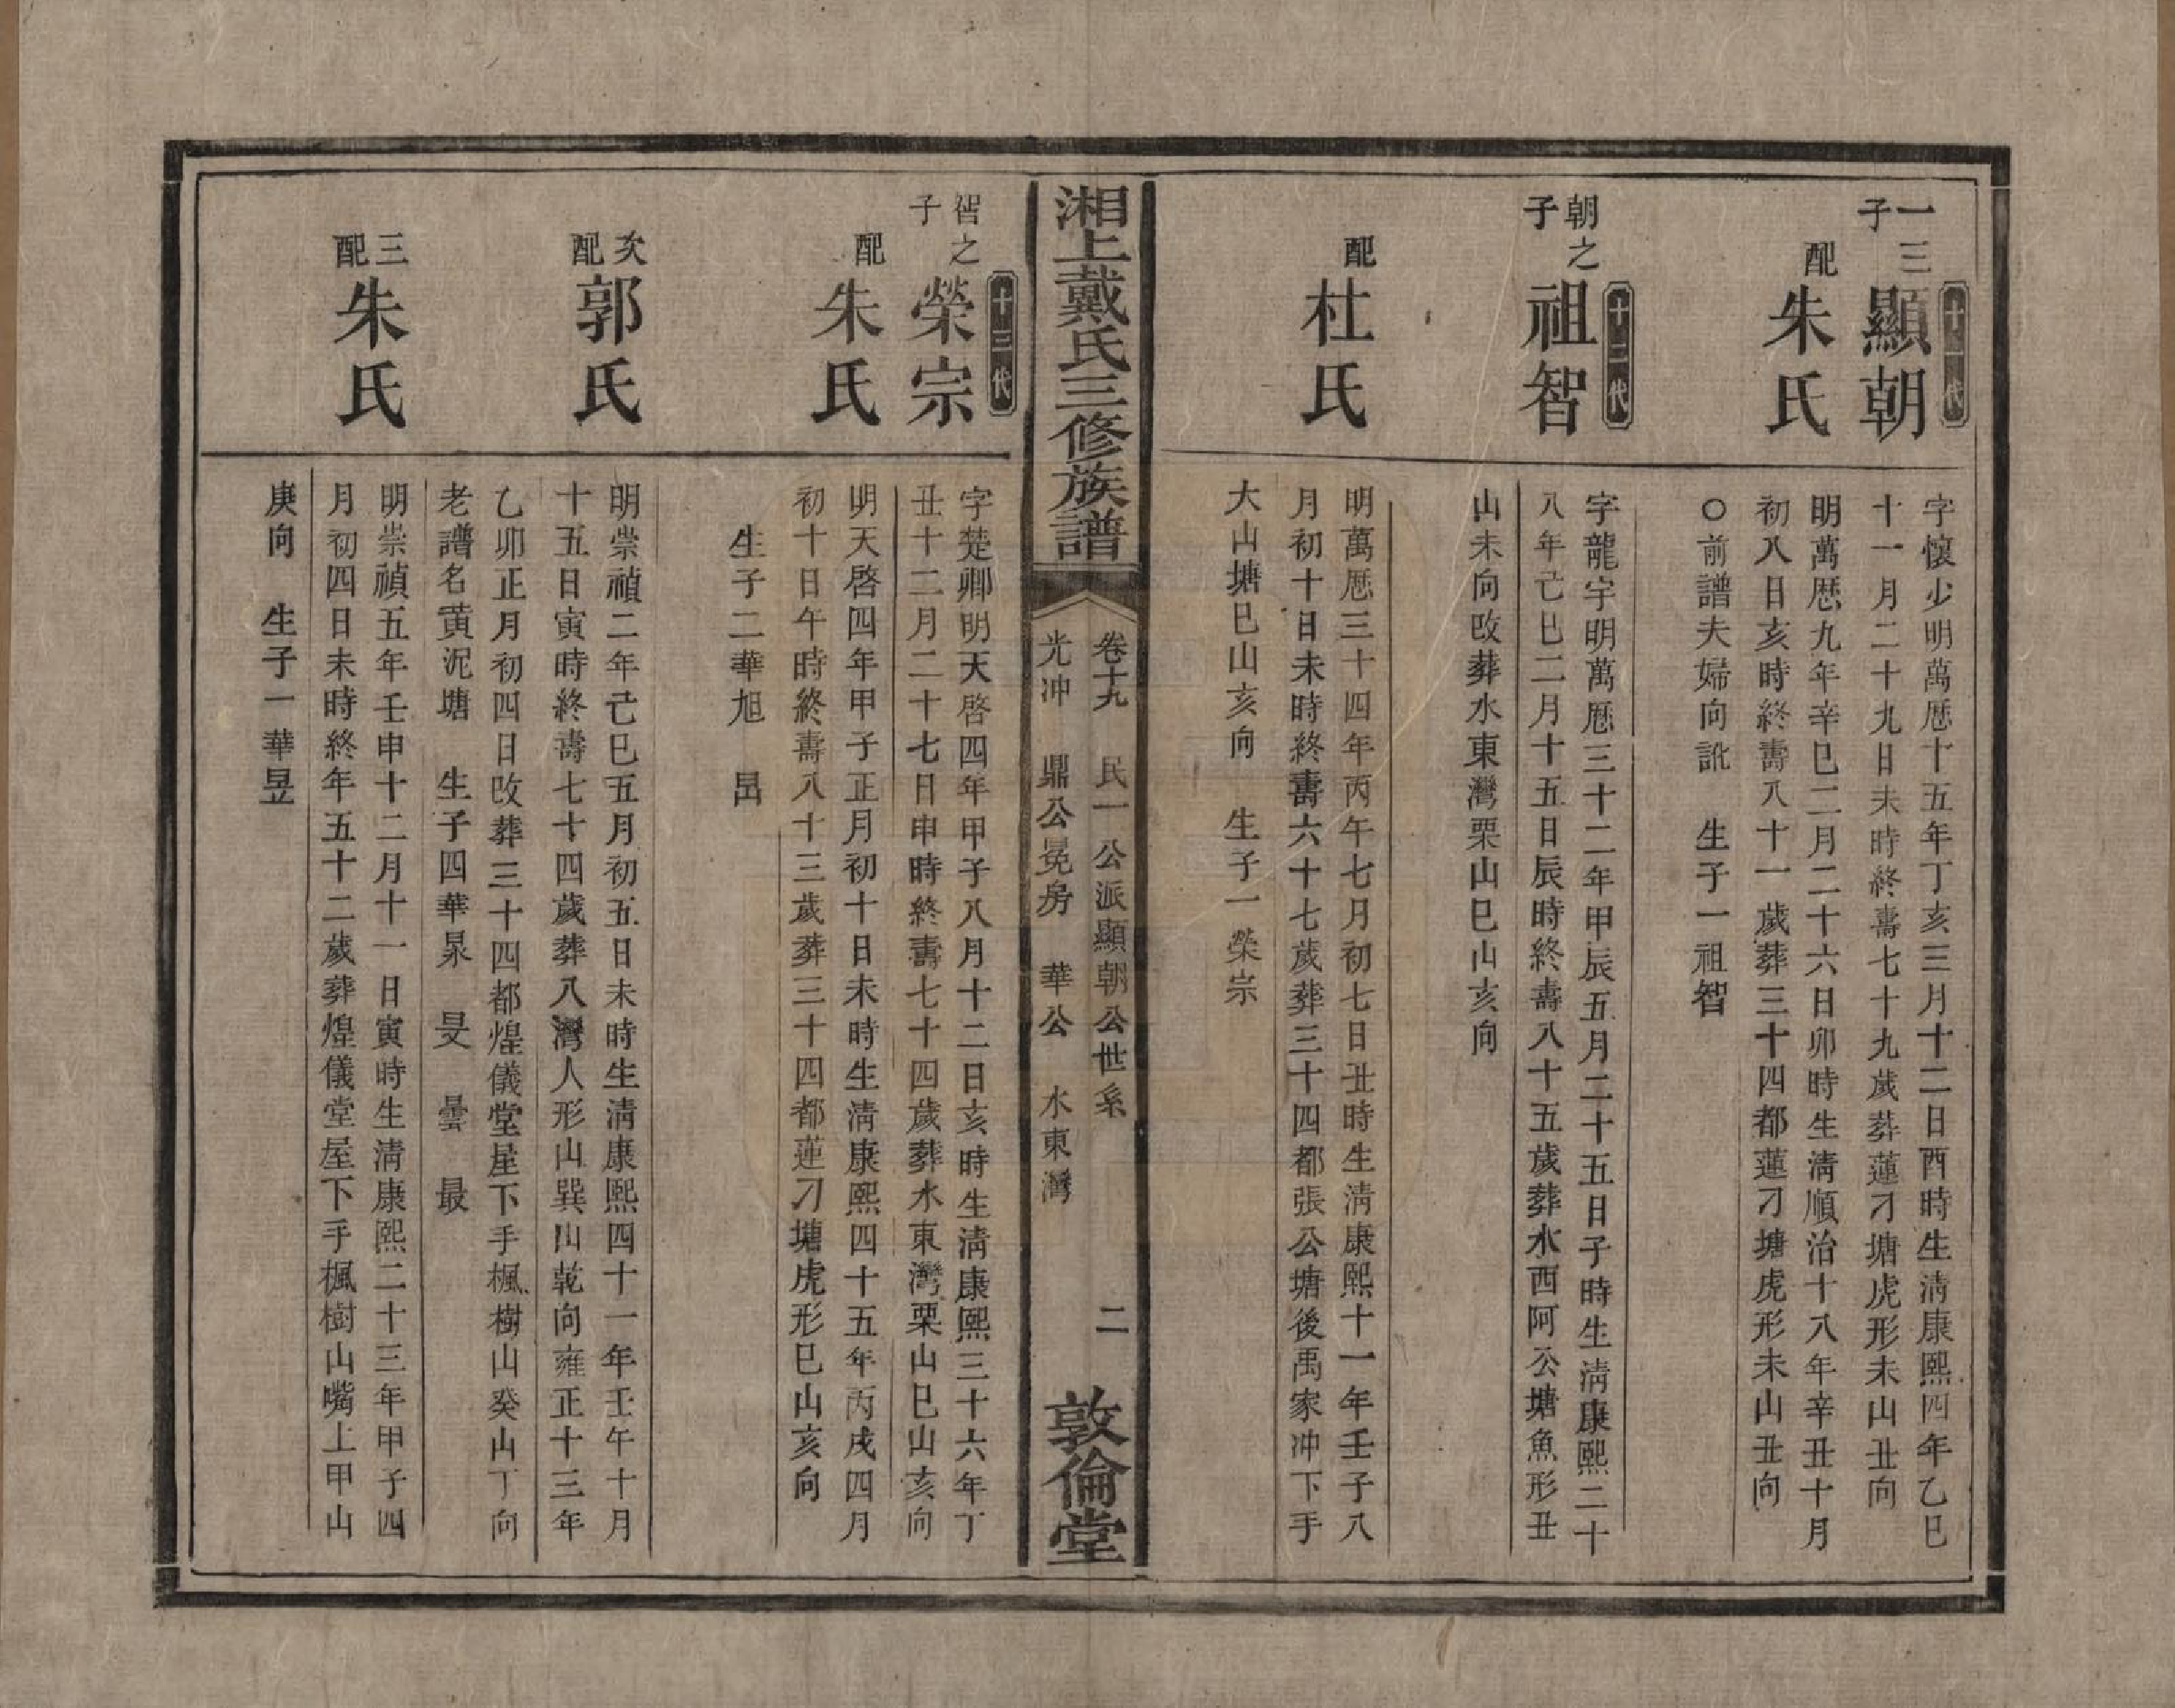 十一代
一三子
顯朝
字懷少明萬厯十五年丁亥三月十二日酉時生清康熙四年乙巳
十一月二十九日未時終壽七十九歲葬蓮刁塘虎形未山丑向
配
朱氏
明萬厯九年辛巳二月二十六日卯時生清順治十八年辛丑十月
初八日亥時終壽八十一歲葬三十四都蓮刁塘虎形未山丑向
○前譜夫婦向訛 生子一祖智
十二代
朝之子
祖智
字龍宇明萬厯三十二年甲辰五月二十五日子時生清康熙二十
八年己巳二月十五日辰時終壽八十五歲葬水西阿公塘魚形丑
山未向改葬水東灣栗山巳山亥向
配
杜氏
明萬厯三十四年丙午七月初七日丑時生清康熙十一年壬子八
月初十日未時終壽六十七歲葬三十四都張公塘後禹家冲下手
大山塘巳山亥向 生子一榮宗
湘上戴氏三修族譜
卷十九 民一公派顯朝公世系 二
光冲 鼎公冕房 華公 水東灣
敦倫堂
十三代
智之子
榮宗
字楚卿明天啓四年甲子八月十二日亥時生清康熙三十六年丁
丑十二月二十七日申時終壽七十四歲葬水東灣栗山巳山亥向
配
朱氏
明天啓四年甲子正月初十日未時生清康熙四十五年丙戌四月
初十日午時終壽八十三歲葬三十四都蓮刁塘虎形巳山亥向
生子二華旭 昌
次配
郭氏
明崇禎二年己巳五月初五日未時生清康熙四十一年壬午十月
十五日寅時終壽七十四歲葬八灣人形山巽山乾向雍正十三年
乙卯正月初四日改葬三十四都煌儀堂屋下手楓樹山癸山丁向
老譜名黃泥塘 生子四華泉 旻 曇 最
三配
朱氏
明崇禎五年壬申十二月十一日寅時生清康熙二十三年甲子四
月初四日未時終年五十二歲葬煌儀堂屋下手楓樹山嘴上甲山
庚向 生子一華昱